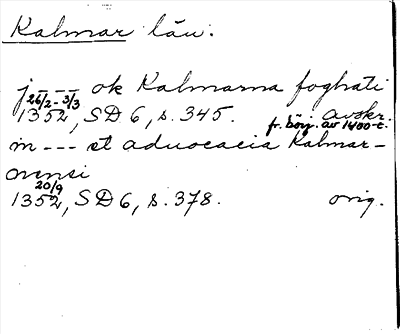 Kalmar län.
j --- ok Kalmarna foghati
26/2-3/3
1352, SD 6, s. 345. avskr.
fr. börj. av 1400-t.
in --- et aduocacia Kalmar-
nensi
20/9
1352, SD 6, s. 378. orig.